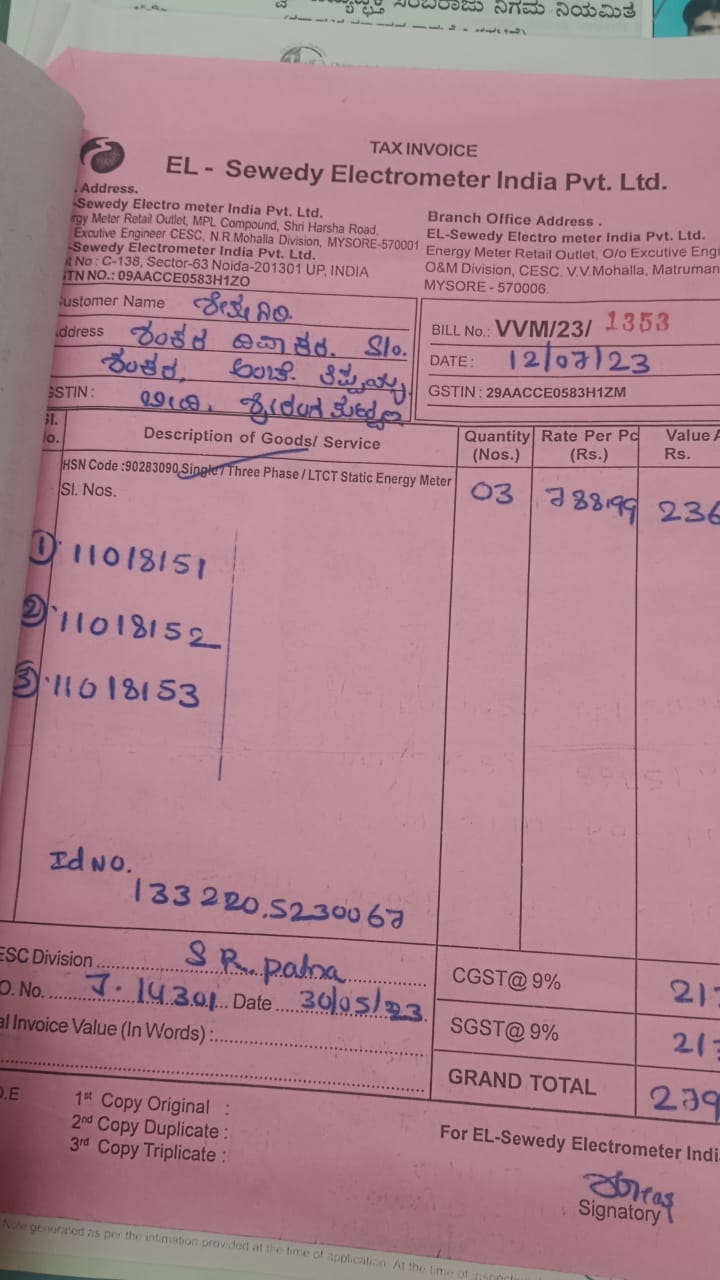 ಸರಬರಾಜು ನಿಗಮ ನಿಯಮಿತ
TAX INVOICE
EL - Sewedy Electrometer India Pvt. Ltd.
Address.
-Sewedy Electro meter India Pvt. Ltd.
rgy Meter Retail Outlet, MPL Compound, Shri Harsha Road,
Excutive Engineer CESC, N.R.Mohalla Division, MYSORE-570001
-Sewedy Electrometer India Pvt. Ltd.
t No : C-138, Sector-63 Noida-201301 UP, INDIA
STN NO.: 09AACCE0583H1ZO
Branch Office Address .
EL-Sewedy Electro meter India Pvt. Ltd.
Energy Meter Retail Outlet, O/o Excutive Engi
O&M Division, CESC, V.V.Mohalla, Matruman
MYSORE - 570006.
ustomer Name
ddress ಶಂಕರ ದಿವಾಕರ. S/o.
ಶಂಕರ, ಅಂಚೆ ತಿಮ್ಮಯ್ಯ
GSTIN : ಬೀದಿ, ಶ್ರೀರಂಗಪಟ್ಟಣ
BILL No.: VVM/23/ 1353
DATE : 12/07/23
GSTIN : 29AACCE0583H1ZM
Sl. No. Description of Goods/ Service Quantity (Nos.) Rate Per Pc (Rs.) Value A Rs.
HSN Code :90283090,Single / Three Phase / LTCT Static Energy Meter 03 788.199 236
Sl. Nos.
① 11018151
② 11018152
③ 11018153
Id No.
133220.5230067
ESC Division S R. patna
O. No. J. 14301 Date 30/05/23
al Invoice Value (In Words) :
CGST@ 9% 21
SGST@ 9% 21
GRAND TOTAL 279
O.E 1st Copy Original :
2nd Copy Duplicate :
3rd Copy Triplicate :
For EL-Sewedy Electrometer Indi
Signatory
Note generated as per the intimation provided at the time of application. At the time of